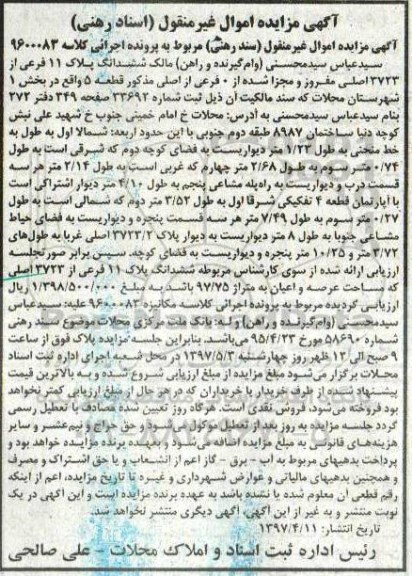 آگهی مزایده اموال غیرمنقول (اسناد رهنی)
آگهی مزایده اموال غیرمنقول (سند رهنی) مربوط به پرونده اجرائی کلاسه ۹۶۰۰۰۸۳
سیدعباس سیدمحسنی (وام‌گیرنده و راهن) مالک ششدانگ پلاک ۱۱ فرعی از
۳۷۲۳ اصلی مفروز و مجزا شده از ۰ فرعی از اصلی مذکور قطعه ۵ واقع در بخش ۱
شهرستان محلات که سند مالکیت آن ذیل ثبت شماره ۳۳۶۹۳ صفحه ۳۴۹ دفتر ۲۷۲
بنام سیدعباس سیدمحسنی به آدرس: محلات خ امام خمینی جنوب خ شهید علی نبش
کوچه دنیا ساختمان ۸۹۸۷ طبقه دوم جنوبی با این حدود اربعه: شمالا اول به طول به
خط منحنی به طول ۱/۲۳ متر دیواریست به فضای کوچه دوم که شرقی است به طول
۰/۷۴ متر سوم به طول ۲/۶۸ متر چهارم که غربی است به طول ۲/۱۴ متر هر سه
قسمت درب و دیواریست به راه‌پله مشاعی پنجم به طول ۴/۱۰ متر دیوار اشتراکی است
با آپارتمان قطعه ۴ تفکیکی شرقا اول به طول ۳/۵۲ متر دوم که شمالی است به طول
۰/۲۷ متر سوم به طول ۷/۴۹ متر هر سه قسمت پنجره و دیواریست به فضای حیاط
مشاعی جنوبا به طول ۸ متر دیواریست به دیوار پلاک ۳۷۲۳/۲ اصلی غربا به طول‌های
۲/۷۲ متر و ۱۰/۲۵ متر پنجره و دیواریست به فضای کوچه. سپس برابر صورتجلسه
ارزیابی ارائه شده از سوی کارشناس مربوطه ششدانگ پلاک ۱۱ فرعی از ۳۷۲۳ اصلی
که مساحت عرصه و اعیان به متراژ ۹۷/۷۵ باشد به مبلغ ۱/۳۹۸/۵۰۰/۰۰۰ ریال
ارزیابی گردیده مربوط به پرونده اجرائی کلاسه مکانیزه ۹۶۰۰۰۸۳ علیه: سیدعباس
سیدمحسنی (وام‌گیرنده و راهن) و له: بانک ملت مرکزی محلات موضوع سند رهنی
شماره ۵۸۶۹۰ مورخ ۹۵/۴/۲۳ می‌باشد. بنابراین جلسه مزایده پلاک فوق از ساعت
۹ صبح الی ۱۲ ظهر روز چهارشنبه ۱۳۹۷/۵/۳ در محل شعبه اجرای اداره ثبت اسناد
محلات برگزار می‌شود مبلغ مزایده از مبلغ ارزیابی شروع شده و به بالاترین قیمت
پیشنهاد شده از طرف خریدار یا خریداران که در هر حال از مبلغ ارزیابی کمتر نخواهد
بود فروخته می‌شود، فروش نقدی است. هرگاه روز تعیین شده مصادف با تعطیل رسمی
گردد جلسه مزایده به روز بعد از تعطیل موکول می‌شود و حق حراج و نیم‌عشر و سایر
هزینه‌های قانونی به مبلغ مزایده اضافه می‌شود و بعهده برنده مزایده خواهد بود و
پرداخت بدهیهای مربوط به آب - برق - گاز اعم از انشعاب و یا حق اشتراک و مصرف
و همچنین بدهیهای مالیاتی و عوارض شهرداری و غیره تا تاریخ مزایده، اعم از اینکه
رقم قطعی آن معلوم شده یا نشده باشد به عهده برنده مزایده است و این آگهی در یک
نوبت منتشر و به غیر از این آگهی، آگهی دیگری منتشر نخواهد شد.
تاریخ انتشار: ۱۳۹۷/۴/۱۱
رئیس اداره ثبت اسناد و املاک محلات - علی صالحی